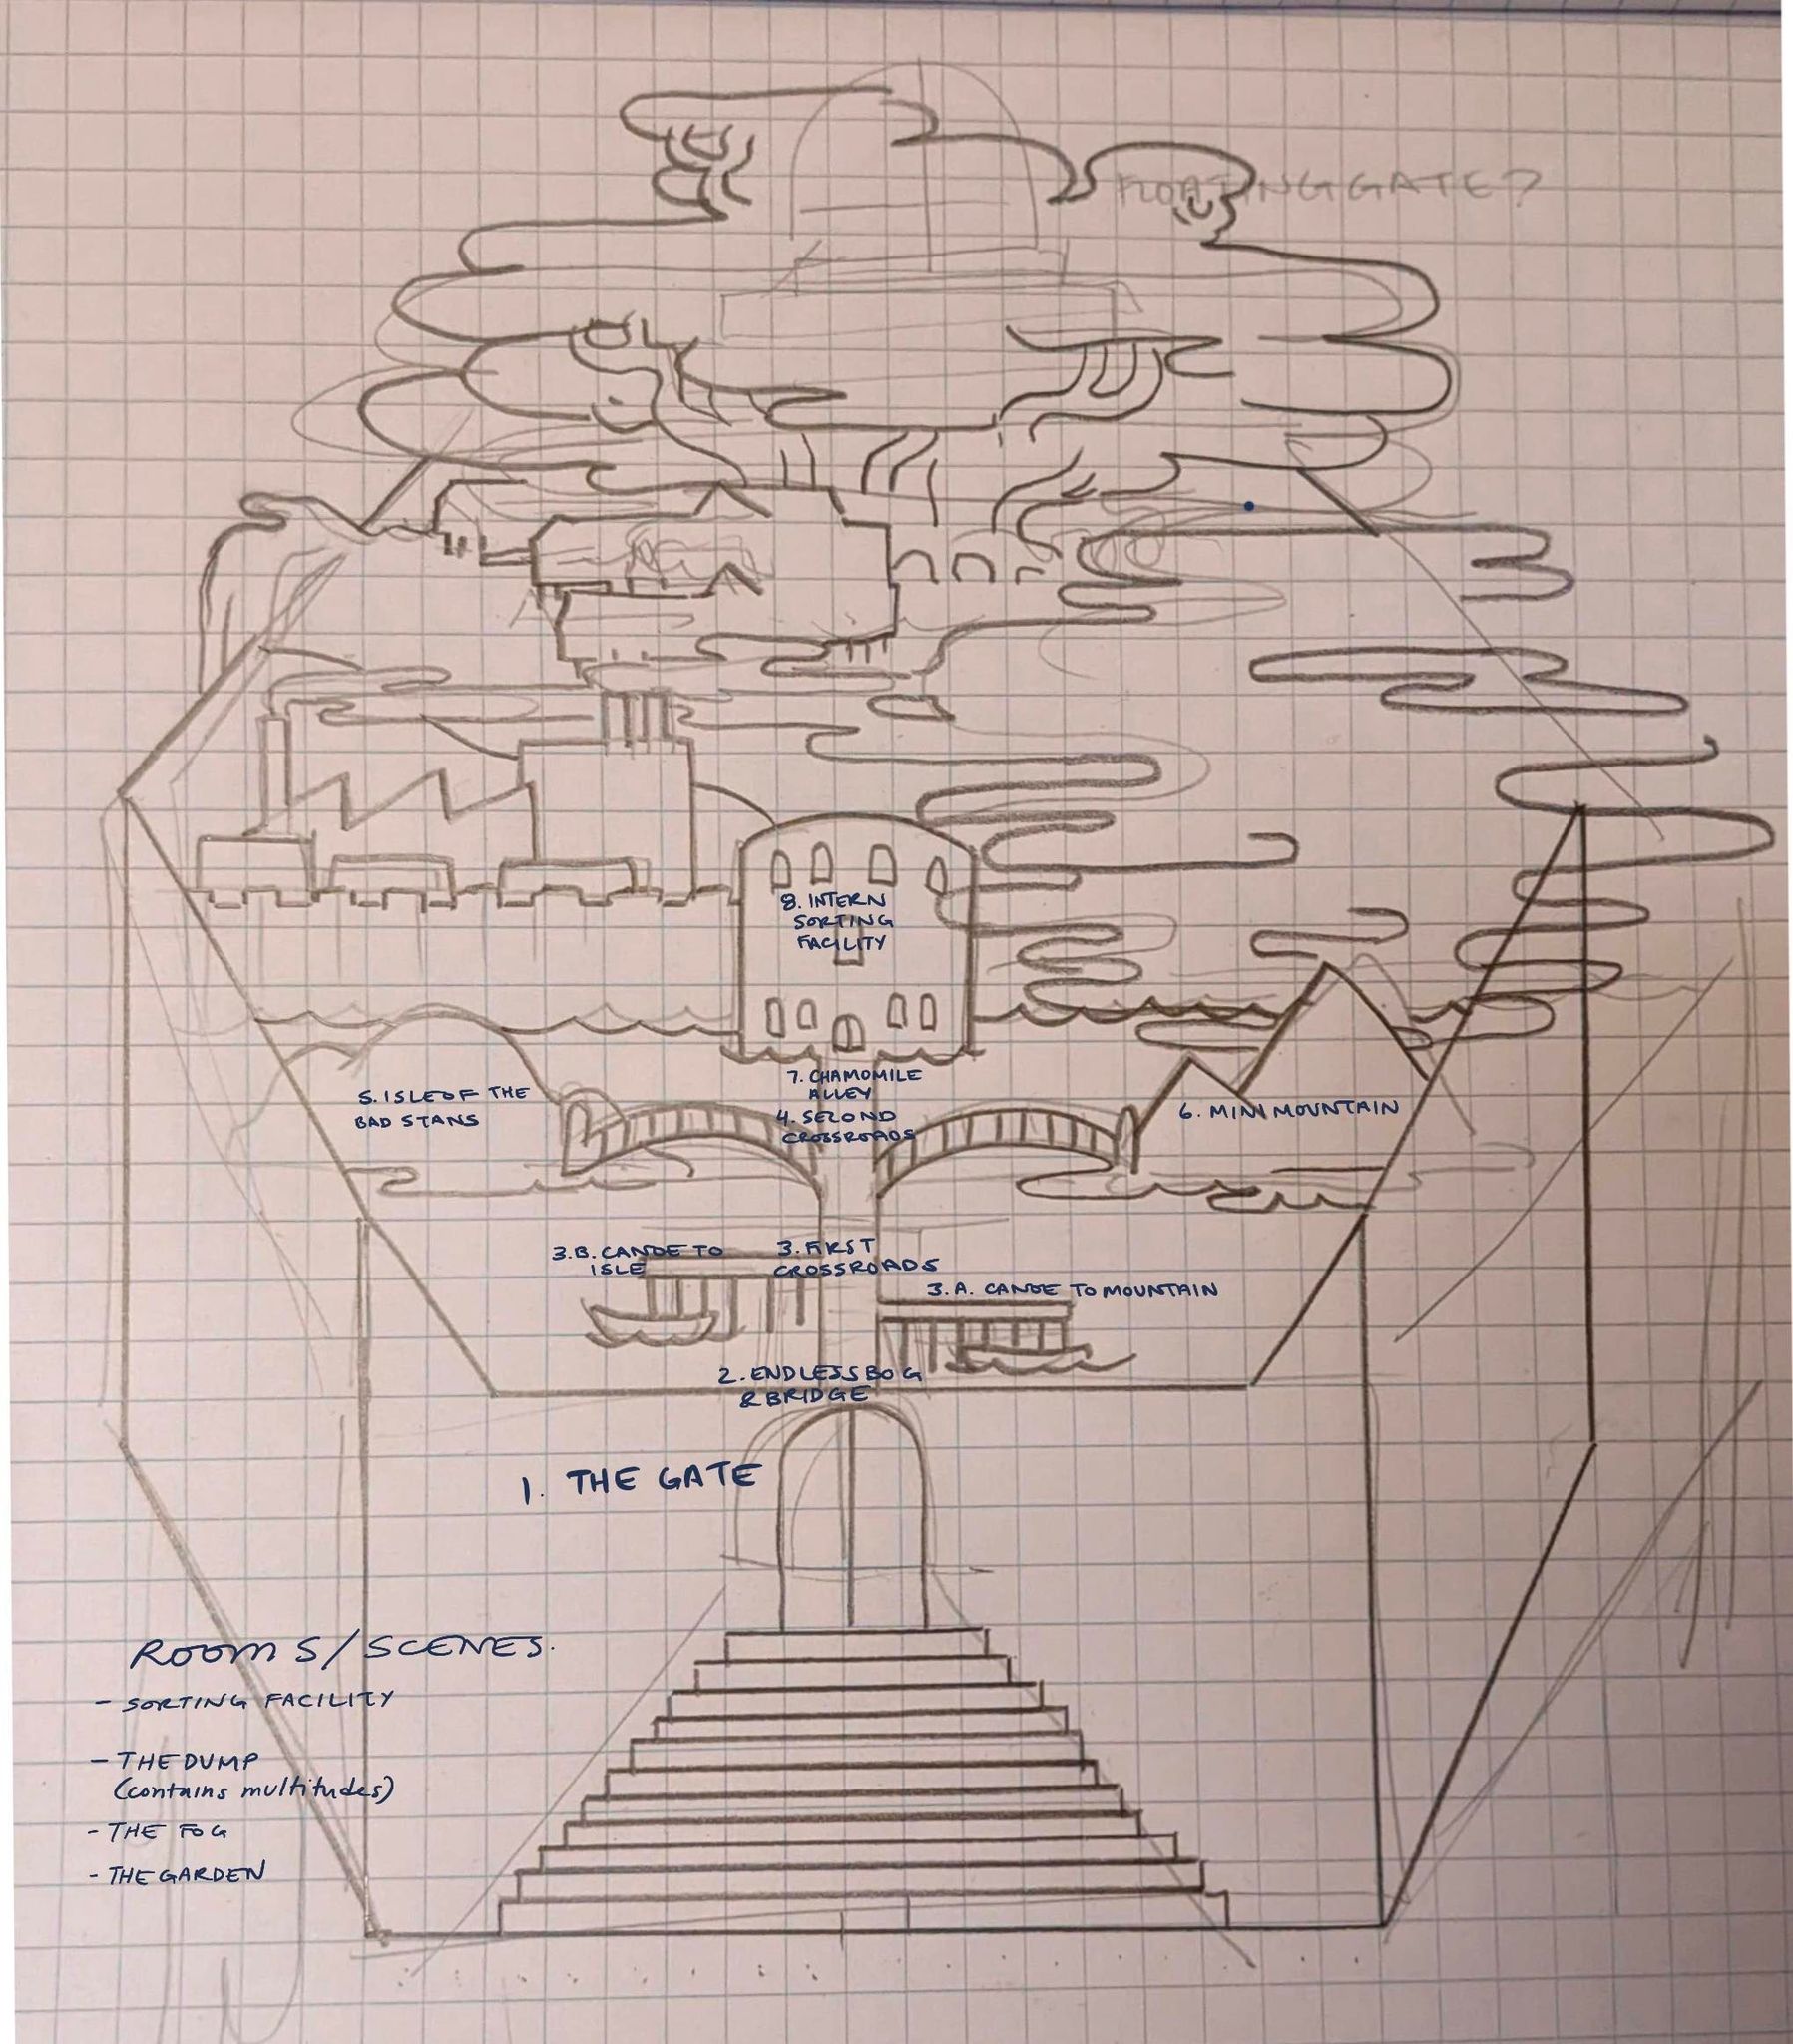 FLOATING GATE?
8. INTERN
SORTING
FACILITY
7. CHAMOMILE
ALLEY
5. ISLE OF THE
BAD STANS
4. SECOND
CROSSROADS
6. MINI MOUNTAIN
3.B. CANOE TO
ISLE
3. FIRST
CROSSROADS
3.A. CANOE TO MOUNTAIN
2. ENDLESS BOG
& BRIDGE
1. THE GATE
ROOMS/SCENES.
- SORTING FACILITY
- THE DUMP
(contains multitudes)
- THE FOG
- THE GARDEN